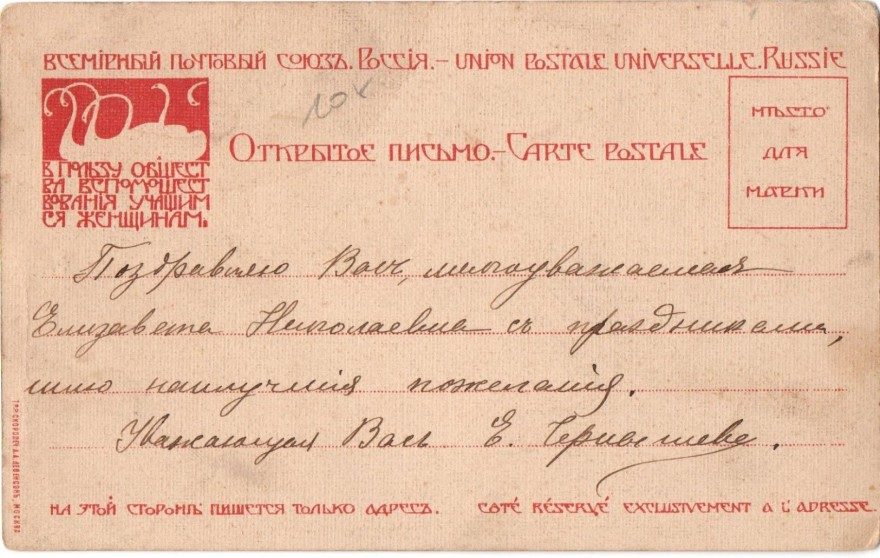 ВСЕМІРНЫЙ ПОЧТОВЫЙ СОЮЗЪ. РОССІЯ.– UNION POSTALE UNIVERSELLE. RUSSIE
10к
ОТКРЫТОЕ ПИСЬМО.–CARTE POSTALE
МѢСТО
ДЛЯ
МАРКИ
В ПОЛЬЗУ ОБЩЕСТ
ВА ВСПОМОЩЕСТ
ВОВАНІЯ УЧАЩИМ
СЯ ЖЕНЩИНАМ.
Поздравляю Васъ, многоуважаемая
Елизавета Николаевна съ праздниками,
шлю наилучшія пожеланія.
Уважающая Васъ Е. Чернышева.
НА ЭТОЙ СТОРОНѢ ПИШЕТСЯ ТОЛЬКО АДРЕСЪ. COTÉ RÉSERVÉ EXCLUSIVEMENT A L'ADRESSE.
МОСКВА